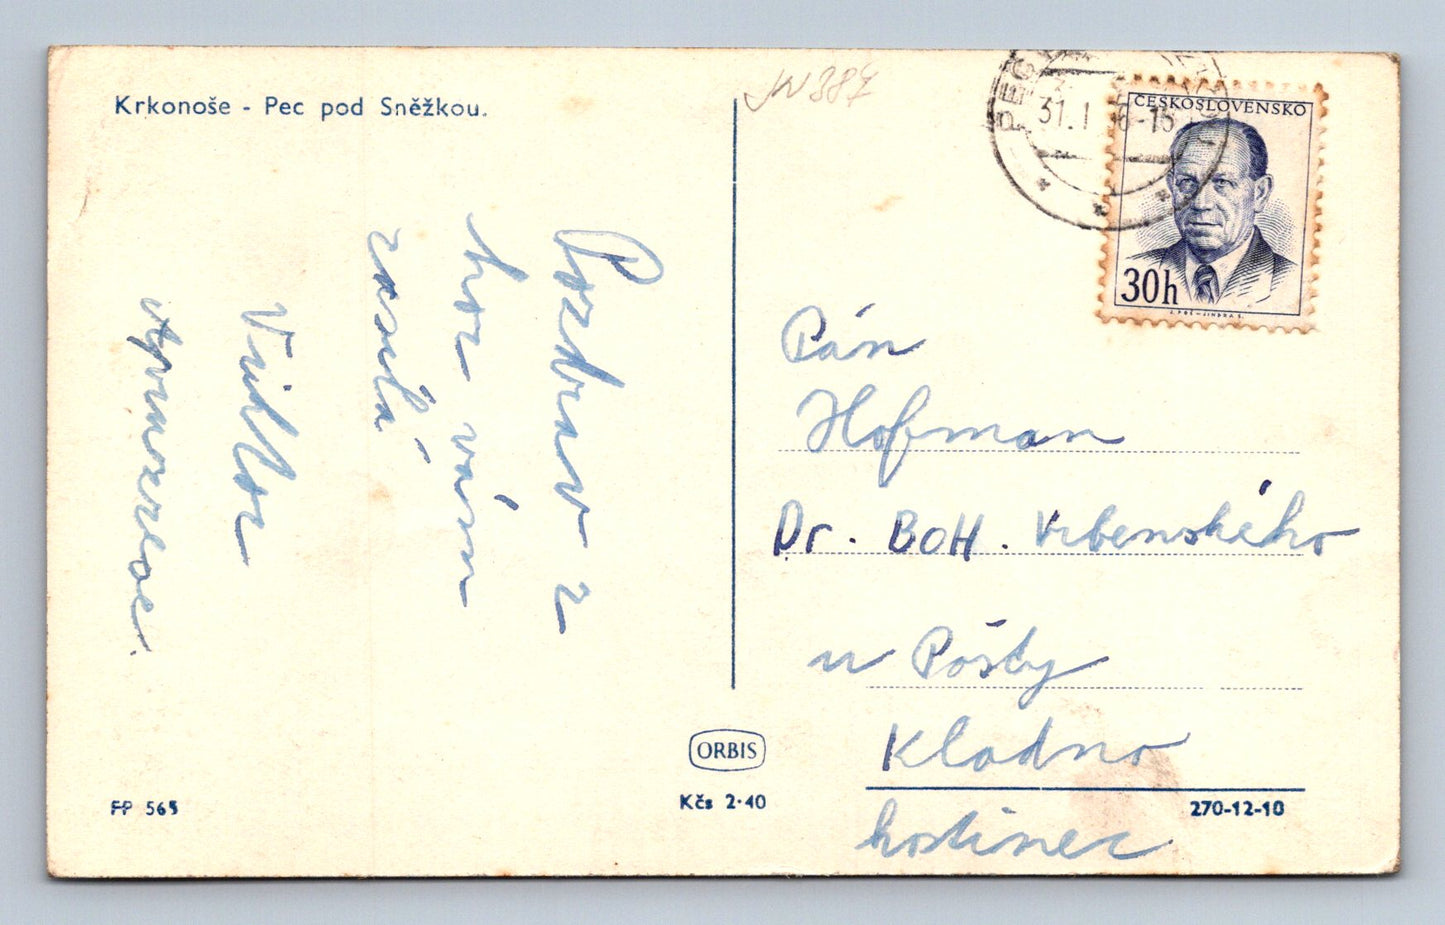 Krkonoše - Pec pod Sněžkou.
Pozdrav z
hor vám
zasílá
Viktor
ORBIS
FP 565
Kčs 2·40
31.1
-15
ČESKOSLOVENSKO
30h
Pán
Hofman
Dr. BOH. Vrbenského
u Pošty
Kladno
270-12-10
hostinec